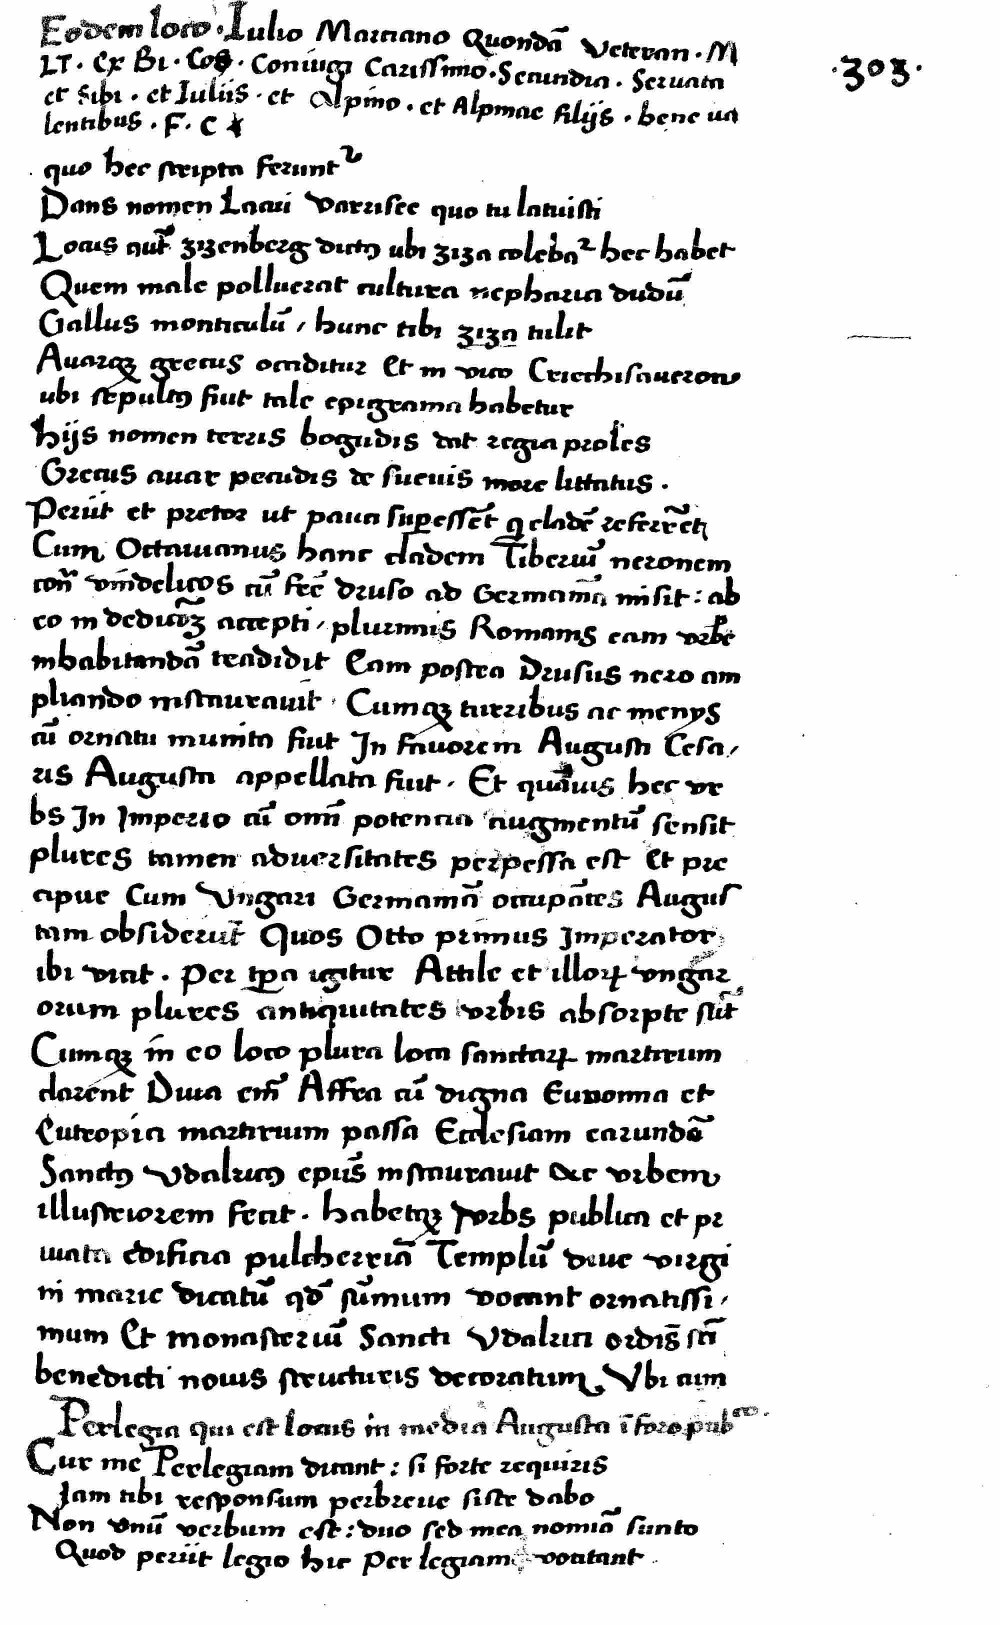 Eodem loco · Iulio Marciano Quondā Veteran · M
LT · Ex BI · Cos · Coniugi Carissimo · Secundia · Servata
et sibi · et Iuliis · et Alpino · et Alpinae filijs · bene va
lentibus · F · C
·303·
quo hec scripta ferunt᷑
Dans nomen Lacui Varrisee quo tu latuisti
Locus aut̄ zizenberg dictꝰ ubi ziza coleba᷑ hec habet
Quem male polluerat cultura nepharia dudū
Gallus monticulū / hunc tibi ziza tulit
Avarqꝫ grecus occiditur Et in vico Criechisaveron
ubi sepultꝰ fiut tale epigrama habetur
Hijs nomen terris bogudis dat regia proles
Grecus avar pecudis de suevis more littatus ·
Periit et pretor ut pauci supessēt q cladē referrēt
Cum Octavianus hanc cladem Tiberiū neronem
con̄ vindelicos cū frē druso ad Germaniā misit : ab
eo in deditōꝫ accepti / plurimis Romanis eam vrbē
inhabitandā tradidit Eam postea Drusus nero am
pliando instauravit · Cumqꝫ turribus ac menijs
cū ornatu munita fiut In favorem Augusti Cesa/
ris Augusta appellata fiut · Et quāvis hec vr
bs In Imperio cū omi potencia augmentū sensit
plures tamen adversitates perpessa est Et pre
cipue Cum Vngari Germaniā occupātes Augus
tam obsiderūt Quos Otto primus Imperator
ibi vicit · Per tp̄a igitur Attile et illorꝝ vngar
orum plures antiquitates vrbis absorpte sūt
Cumqꝫ in eo loco plura loca sanctarꝝ martirum
clarent Diva em̄ Affra cū digna Eunomia et
Eutropia martirium passa Ecclesiam earundē
Sanctꝰ Vdalricꝰ epūs instauravit Ac vrbem
illustriorem fecit · habetqꝫ vrbs publica et pr
iuata edificia pulcherriā Templū dive virgi
ni marie dicatū qd̄ sūmum vocant ornatissi/
mum Et monasteriū Sancti Vdalrici ordis̄ sc̄i
benedicti novis structuris decoratum Vbi cum
Perlegia qui est locus in media Augusta ī foro pub
Cur me Perlegiam dicant : si forte requiris
Iam tibi responsum perbreve siste dabo
Non vnū verbum est : duo sed mea nomiā sunto
Quod periit legio hic Per legiam vocitant